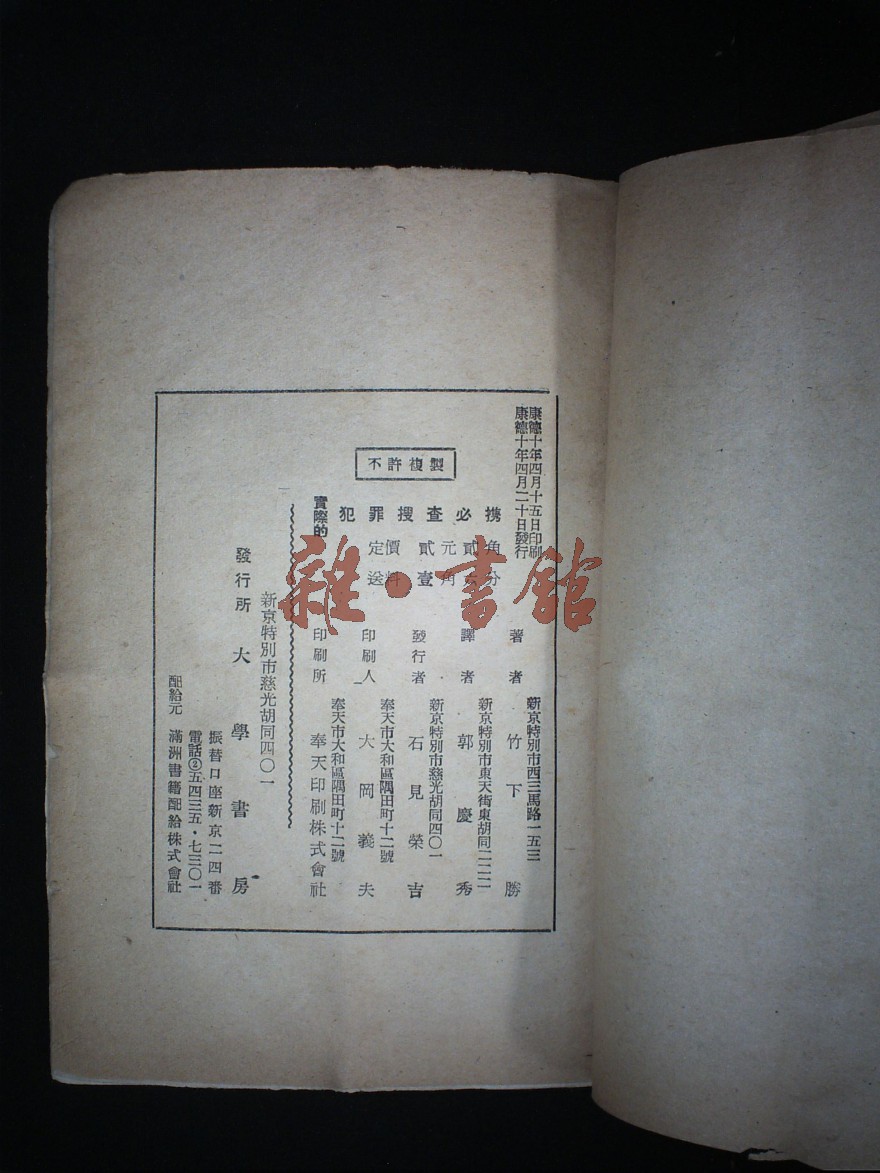 康德十年四月十五日印刷
康德十年四月二十日發行
不許複製
實際的
犯罪搜查必携
定價 貳元貳角
送料 壹角 分
著者
新京特別市西三馬路一五三
竹下勝
譯者
新京特別市東天街東胡同二二二
郭慶秀
發行者
新京特別市慈光胡同四〇一
石見榮吉
印刷人
奉天市大和區隅田町十二號
大岡義夫
印刷所
奉天市大和區隅田町十二號
奉天印刷株式會社
新京特別市慈光胡同四〇一
發行所 大學書房
振替口座新京二四番
電話②五四三五・七三〇一
配給元 滿洲書籍配給株式會社
雜·書館